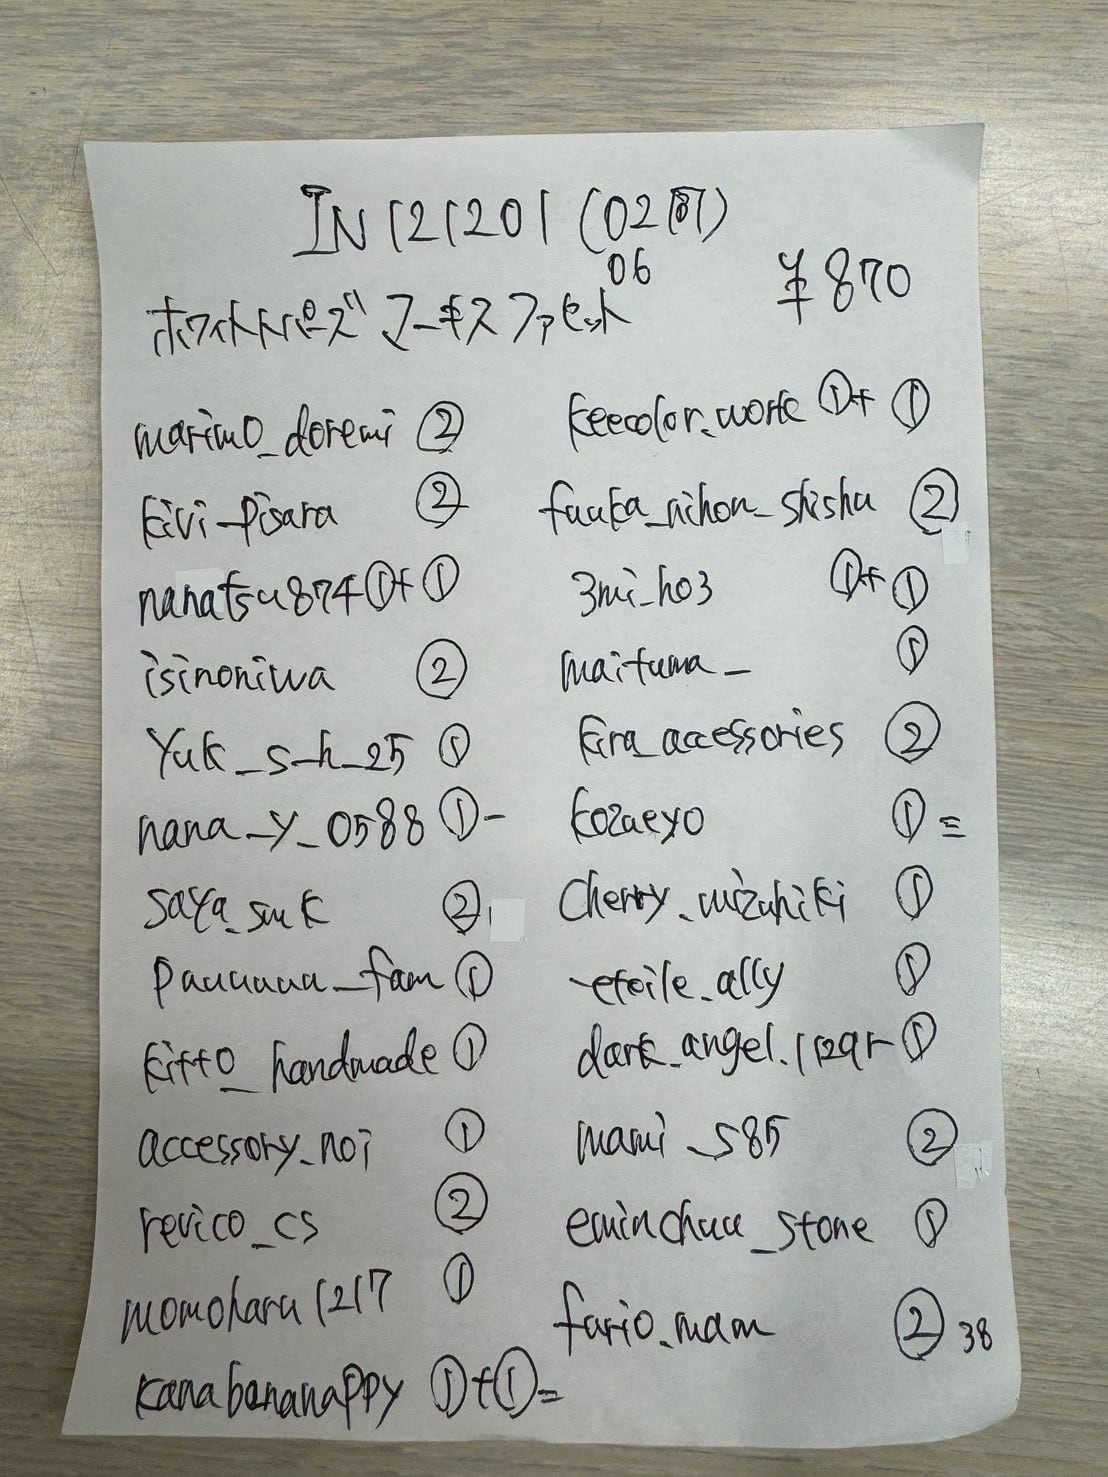 IN121201 (02閉)
06
ホワイトトパーズ マーキスファセット
¥870
marimo_doremi ②
kivi_pisara ②
nanatsu874 ①+①
isinoniwa ②
yuk_s_h_25 ①
nana_y_0588 ①-
saya_suk ②
pauuuuu_fam ①
kitto_handmade ①
accessory_noi ①
revico_cs ②
momoharu1217 ①
kanabananappy ①+①=
keecolor.work ①+①
fuuka_nihon_shishu ②
3mi_ho3 ①+①
maituma_ ①
kira_accessories ②
kozueyo ①=
cherry.mizuhiki ①
-etoile.ally ①
dark_angel. ①
mami_s85 ②
eminchuu_stone ①
fario.mam ② 38